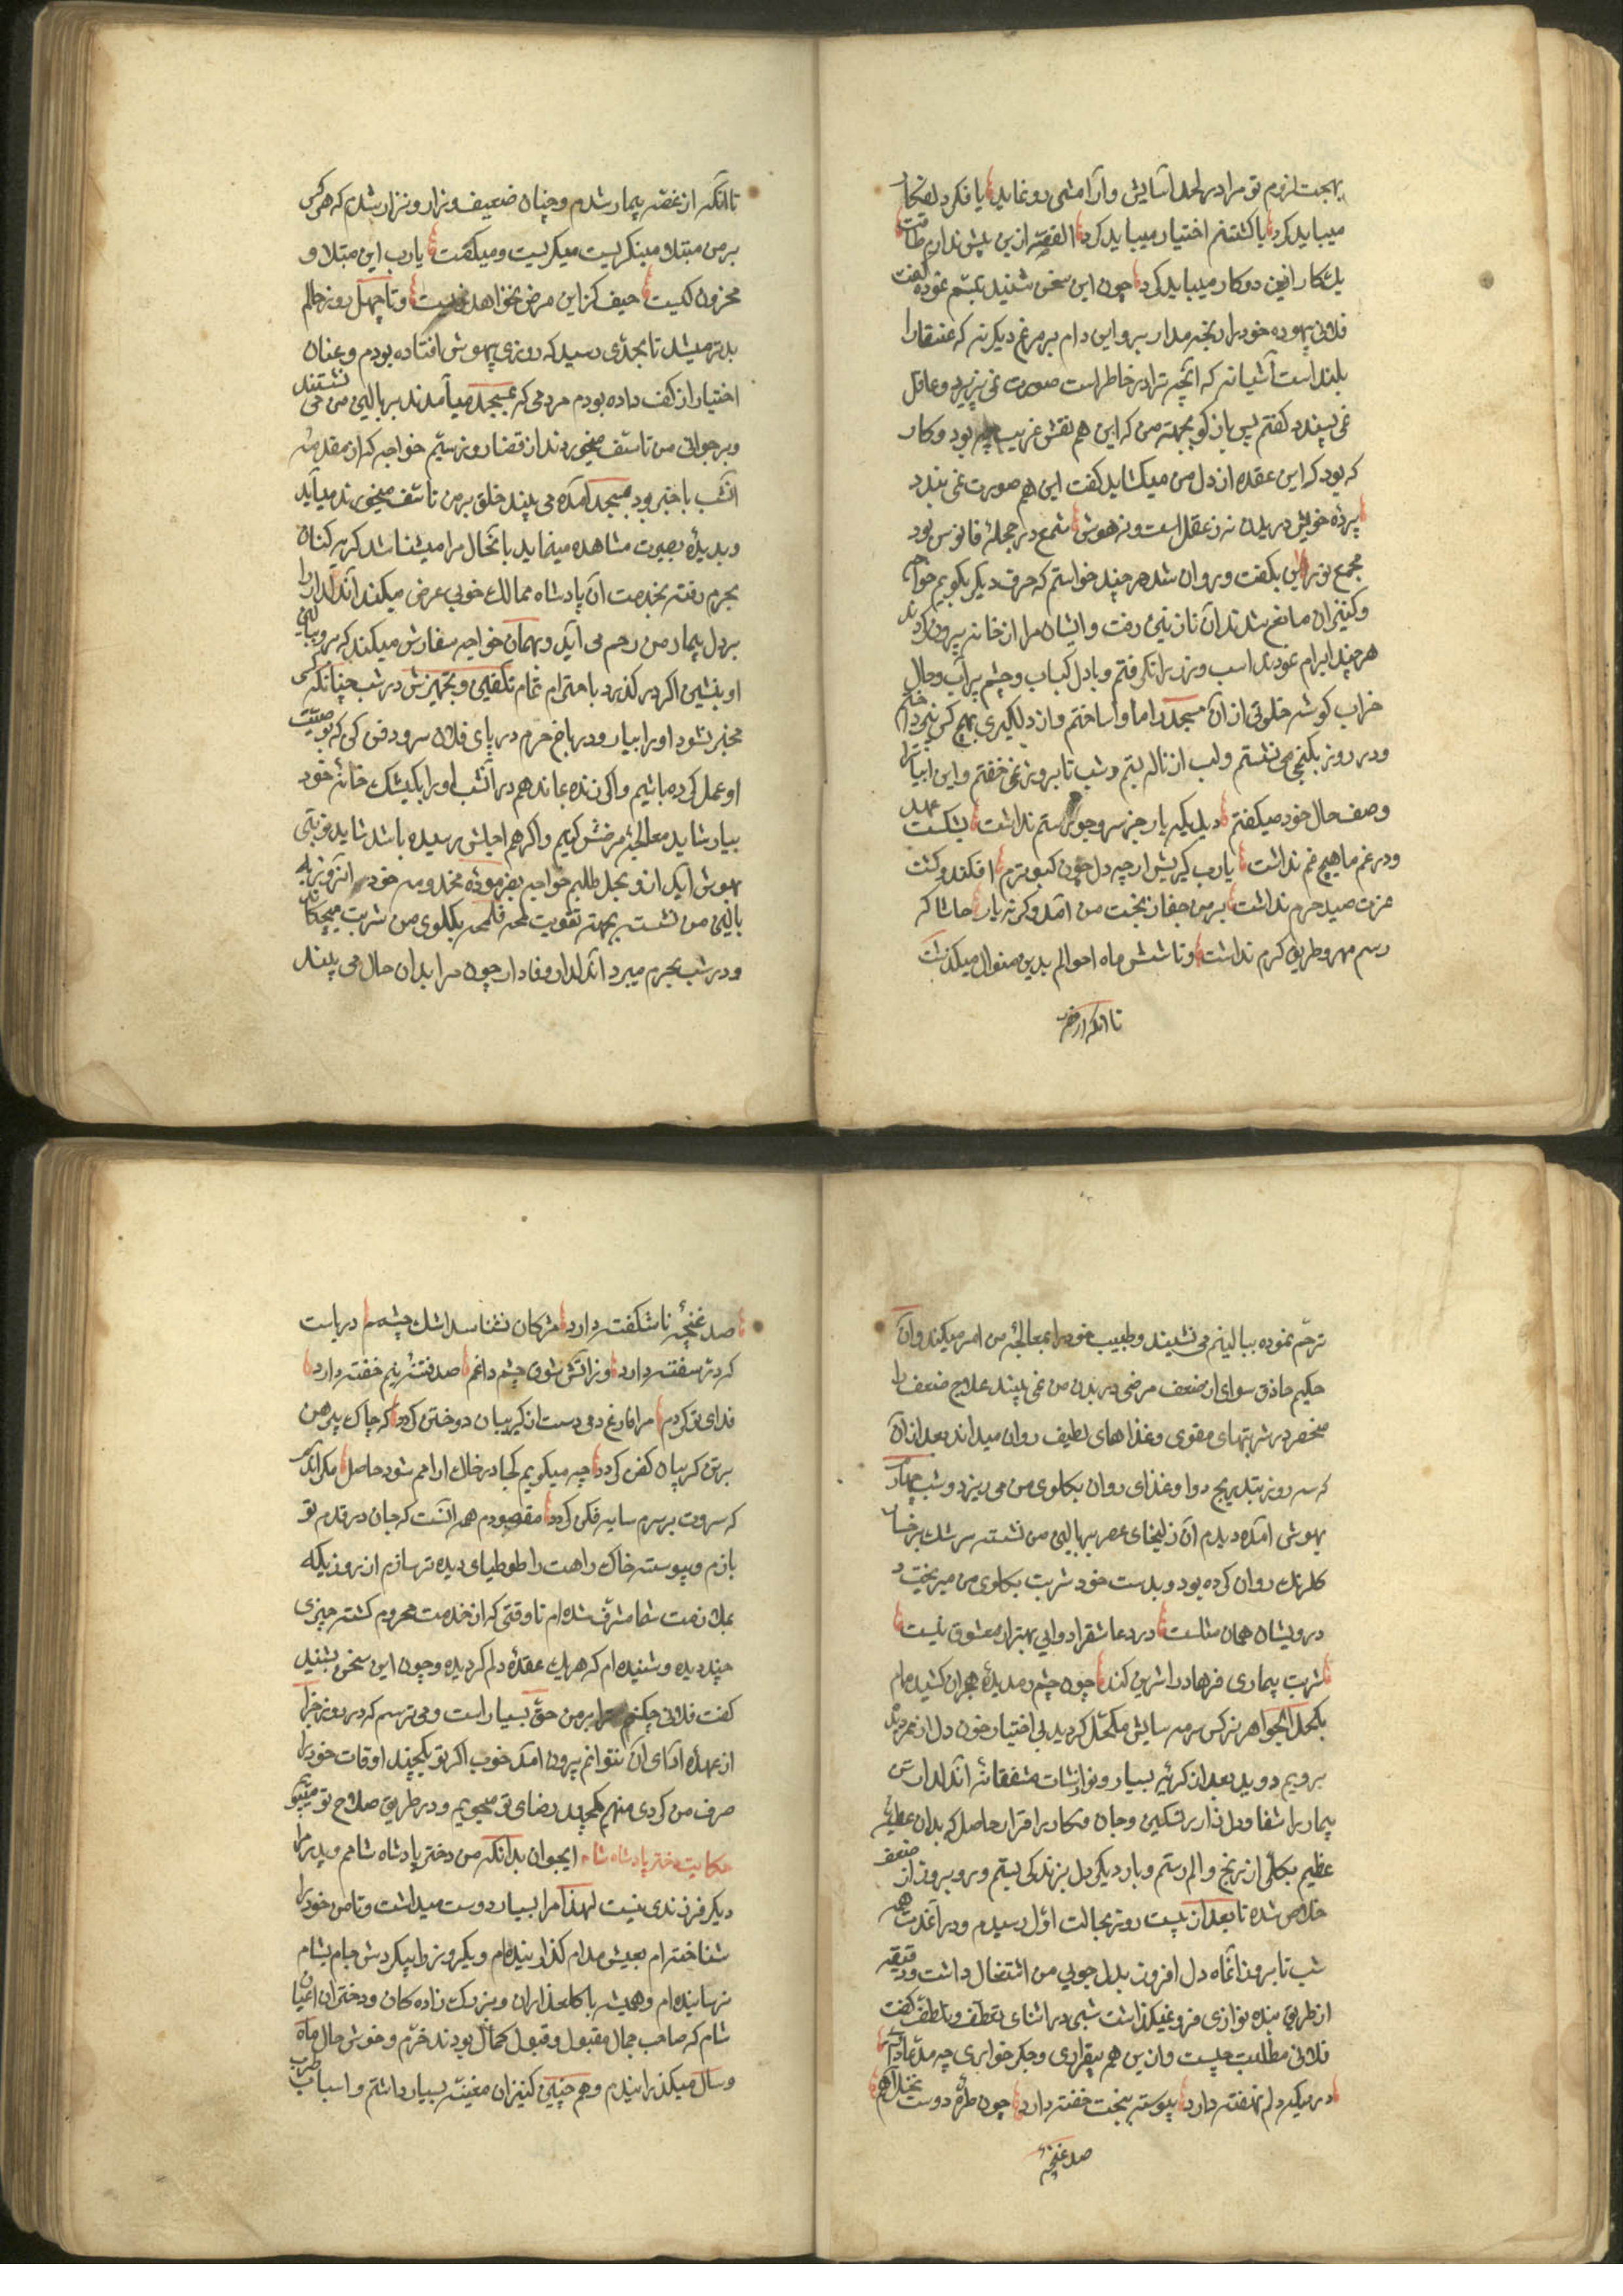 بهجت لزوم تو مرا در لحد آسایش و آرامشی رو نماید یا فکر دلفکار
میباید کرد یا کشتنم اختیار میباید کرد القصه ازین بیش ندارم طاقت
یک کار ازین دو کار میباید کرد چون این سخن شنید تبسم نموده گفت
فلانی بیهوده خود را رنجه مدار برو این دام بر مرغ دیگر نه که عنقا را
بلند است آشیانه که آنچه ترا در خاطر است صورت نمی پزیرد و عاقل
نمی پسندد گفتم پس باز گو بجهته من که این هم نقش غریب بود و کار
که بود که این عقده از دل من میکشاید گفت این هم صورت نمی بندد
پرده خویش دریدن نه ز عقل است و نه هوش شمع در حجلهٔ فانوس بود
مجمع نور این بگفت و روان شد هر چند خواستم که حرف دیگر بگویم خواجه
و کنیزان مانع شدند آن نازنین رفت و ایشان مرا از خانه بیرون کردند
هر چند ابرام نمودند اسب و زر را نگرفتم و با دل کباب و چشم پر آب و حال
خراب گوشه خلوتی از آن مسجد را ماوا ساختم و از دلگیری بهیچ کس نپرداختم
و در روز بکنجی می نشستم و لب از ناله بستم و شب تا بروز نمی خفتم و این ابیات را
وصف حال خود میگفتم دیدیکه یار جز سر جور و ستم نداشت بشکست عهد
و در غم ما هیچ غم نداشت یارب مگیرش ار چه دل چون کبوترم افکند و کشت
عزت صید حرم نداشت بر من جفا ز بخت من آمد وگرنه یار حاشا که
رسم مهر و طریق کرم نداشت و تا شش ماه احوالم بدین منوال میگذشت
تا آنکه از غصه
تا آنکه از غصه بیمار شدم و چنان ضعیف و نزار و نزار شدم که هر کس
بر من مبتلا مینگریست میگریست و میگفت یارب این مبتلا و
محزون کیست حیف کز این مرض نخواهد زیست و تا چهل روز حالم
بدتر میشد تا بحدی رسید که روزی بیهوش افتاده بودم و عنان
اختیار از کف داده بودم مردمی که بمسجد میآمدند بر بالین من می نشستند
و بر جوانی من تاسف میخوردند از قضا روز سیم خواجه که از مقدمه
آنشب با خبر بود بمسجد آمده می بیند خلق بر من تاسف میخورند میآید
و بدیدهٔ بصیرت مشاهده مینماید با آنحال مرا میشناسد گریه کنان
بحرم رفته بخدمت آن پادشاه ممالک خوبی عرض میکند آن دلدار را
بر دل بیمار من رحم می آید و بهمان خواجه سفارش میکند که برو ببالین
او بنشین اگر در گذرد باحترام تمام تکفین و تجهیزش در شب چنانکه کسی
مخبر نشود او را بیار و در باغ حرم در پای فلان سرو دفن کن که بوصیت
او عمل کرده باشیم و اگر زنده بماند هم در آنشب او را بکیشک خانه خود
بیار شاید معالجهٔ مرضش کنیم و اگر هم اجلش رسیده باشد شاید نوبتی
بهوش آید از و بحل طلبیم خواجه بفرموده مخدومه خود آنروز به
بالین من نشسته بجهته تقویت لمحه فلمحه بگلوی من شربت میچکاند
و در شب بحرم میبرد آن دلدار وفادار چون مرا بدان حال می بیند
ترحم نموده ببالینم می نشیند و طبیب خود را بمعالجه من امر میکند و آن
حکیم حاذق سوای از ضعف مرضی در بدن من نمی بیند علاج ضعف را
منحصر در شربتهای مقوی و غذاهای لطیف روان میداند بعد از آن
که سه روز بتدریج دوا و غذای روان بگلوی من می ریزد و شب چهارم
بهوش آمده دیدم آن زلیخای عصر ببالین من نشسته سرشک بر رخسار
گلرنک روان کرده بود و بدست خود شربت بگلوی من میریخت و
درویشان همان مثلست درد عاشق را دوایی بهتر از معشوق نیست
شربت بیماری فرهاد را شیرین کند چون چشم رمد دیدهٔ هجران کشیده ام
بکحل الجواهر نرکس سرمه سایش مکحل گردید بی اختیار خون دل از مردمک
برویم دوید بعد از گریه بسیار و نوازشات مشفقانه آن دلدار تن
بیمار را شفا و دل زار را تسکین و جان فکار را قرار حاصل که بدان عطیهٔ
عظیم بکلی از رنج و الم رستم و بار دیگر دل بزندگی بستم و روبروز از ضعف
خلاص شده تا بعد از بیست روز بحالت اول رسیدم و در آنمدت همه
شب تا بروز آنماه دل افروز بدلجویی من اشتغال داشت و دقیقه
از طریق بنده نوازی فرو نمیگذاشت شبی در اثنای تعطف و تلطف گفت
فلانی مطلبت چیست و از من هم بیقراری و جگر خواری چه مدعا داری
در میگیر دلم نهفته دارد پیوسته بخت خفته دارد چون طره دوست نخل آهم
صد غنچه
صد غنچهٔ ناشکفته دارد مژگان نشناسد اشک چشمم دریاست
که در سفته دارد وز آتش شوق چشم داغم صد فتنه نیم خفته دارد
فدای تو گردم مرا فارغ دمی دست از گریبان دوختن گردد که چاک پیرهن
بر تن گریبان کفن گردد چه میگویم کجا در خاک آرامم شود حاصل مگر آنکه
که سروت بر سرم سایه فکن گردد مقصودم همه آنست که جان در قدم تو
بازم و پیوسته خاک راهت را طوطیای دیده تر سازم از روزیکه
بملازمت شما مشرف شده ام تا وقتی که از خدمت محروم گشته چیزی
چند دیده و شنیده ام که هر یک عقدهٔ دلم گردیده و چون این سخن بشنید
گفت فلانی چکنم ترا بر من حق بسیار است و می ترسم که در روز جزا
از عهدهٔ ادای آن نتوانم بیرون آمد خوب اگر تو یکچند اوقات خود را
صرف من کردی منهم یکچند رضای تو میجویم و در طریق صلاح تو میپویم
حکایت دختر پادشاه شام ایجوان بدانکه من دختر پادشاه شامم و پدر مرا
دیگر فرزندی نیست لهذا مرا بسیار دوست میداشت و تا من خود را
شناخته ام بعیش مدام گذرانیده ام و یکروز را بیگردش جام بشام
نرسانیده ام و همیشه با گلعذاران و بزرک زاده کان و دختران اعیان
شام که صاحب جمال مقبول و قبول کمال بودند خرم و خوش حال ماه
و سال میگذرانیدم و هم چنین کنیزان مغنیه بسیار داشتم و اسباب طرب